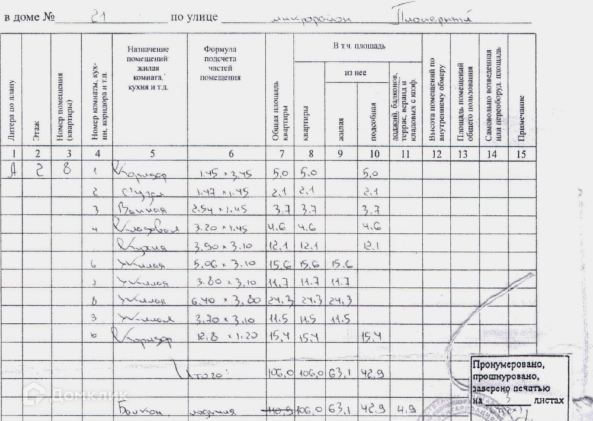 в доме № 21 по улице микрорайон Пионерный
Литера по плану
Этаж
Номер помещения (квартиры)
Номер комнаты, кухни, коридора и т.п.
Назначение помещений: жилая комната, кухня и т.д.
Формула подсчета частей помещения
Общая площадь квартиры
В т.ч. площадь
квартиры
из нее
жилая
подсобная
лоджий, балконов, террас, веранд и кладовых с коэф.
Высота помещений по внутреннему обмеру
Площадь помещений общего пользования
Самовольно возведенная или переоборуд. площадь
Примечание
1 2 3 4 5 6 7 8 9 10 11 12 13 14 15
А 2 8 1 Коридор 1.45 × 3.45 5,0 5,0 5,0
2 С/узел 1.47 × 1.45 2,1 2,1 2,1
3 Ванная 2.54 × 1.45 3,7 3,7 3,7
4 Кладовая 3.20 × 1.45 4,6 4,6 4,6
Кухня 3,90 × 3.10 12,1 12,1 12,1
6 Жилая 5,06 × 3,10 15,6 15,6 15,6
7 Жилая 3.80 × 3,10 11,7 11.7 11.7
8 Жилая 6,40 × 3,80 24,3 24,3 24,3
9 Жилая 3.70 × 3,10 11,5 11,5 11,5
10 Коридор 12,8 × 1.20 15,4 15,4 15,4
Итого: 106,0 106,0 63,1 42,9
Балкон лоджия 110,9 106,0 63,1 42,9 4,9
Пронумеровано,
прошнуровано,
заверено печатью
на 3 листах
Домклик